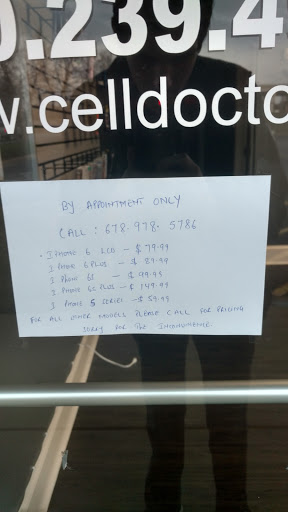 0.239.4
w.celldocto
By APPOINTMENT ONLY
CALL : 678.978. 5786
• IPHONE 6 LCD — $ 79.99
I PHONE 6 PLUS — $ 89.99
I PHONE 6S — $ 99.99
I PHONE 6S PLUS — $ 149.99
I PHONE 5 SERIES — $ 59.99
FOR ALL OTHER MODELS PLEASE CALL FOR PRICING
SORRY FOR THE INCONVENIENCE